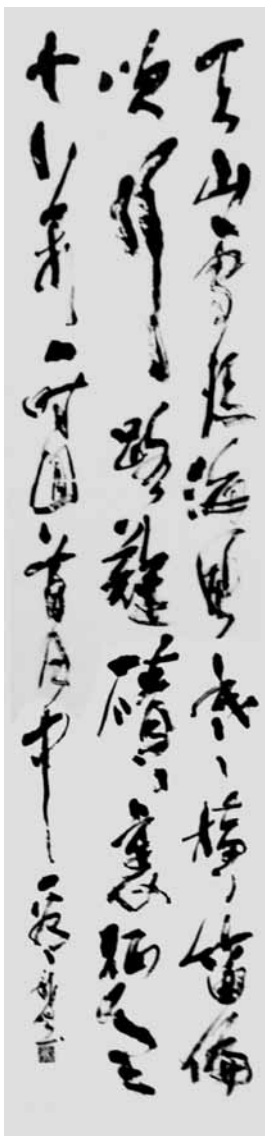 天山雪後海風寒橫笛偏
吹行路難磧裏征人三
十萬一時回首月中看